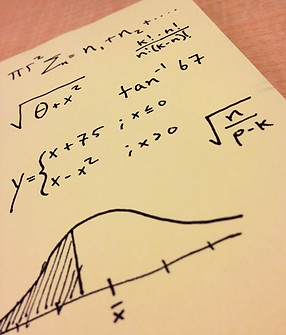 πr² Σₙ = n₁ + n₂ + ....
k! · n!
n! (k-n)!
√θ + x²
tan⁻¹ 67
y = { x + 75 ; x ≤ 0
x - x² ; x > 0
√n/p-k
x̄